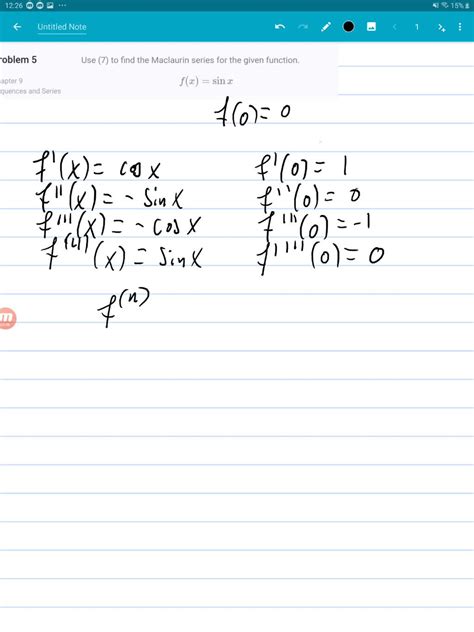 12:26 15%
Untitled Note 1
roblem 5 Use (7) to find the Maclaurin series for the given function.
apter 9
quences and Series
f(x) = sin x
f(0) = 0
f'(x) = cos x f'(0) = 1
f''(x) = - sin x f''(0) = 0
f'''(x) = - cos x f'''(0) = -1
f^(4)(x) = sin x f''''(0) = 0
f^(n)
m